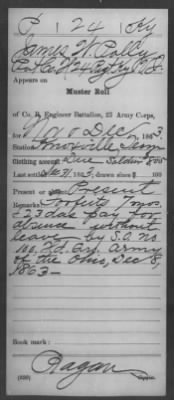 P | 24 | Ky
James W. Polly
Pvt. Co. 24 Reg't Ky
Appears on
Muster Roll
of Co. B, Engineer Battalion, 23 Army Corps,
for Nov & Dec, 1863
Station Knoxville Tenn
Clothing account Due Soldier $
Last settled 1863; drawn since $ 100
Present or absent Present
Remarks: Forfeits mos
& 23 das pay for
absence without
leave by S.O. No
Army
of the Ohio, Dec 8,
1863
Book mark:
Ragan
Copyist.